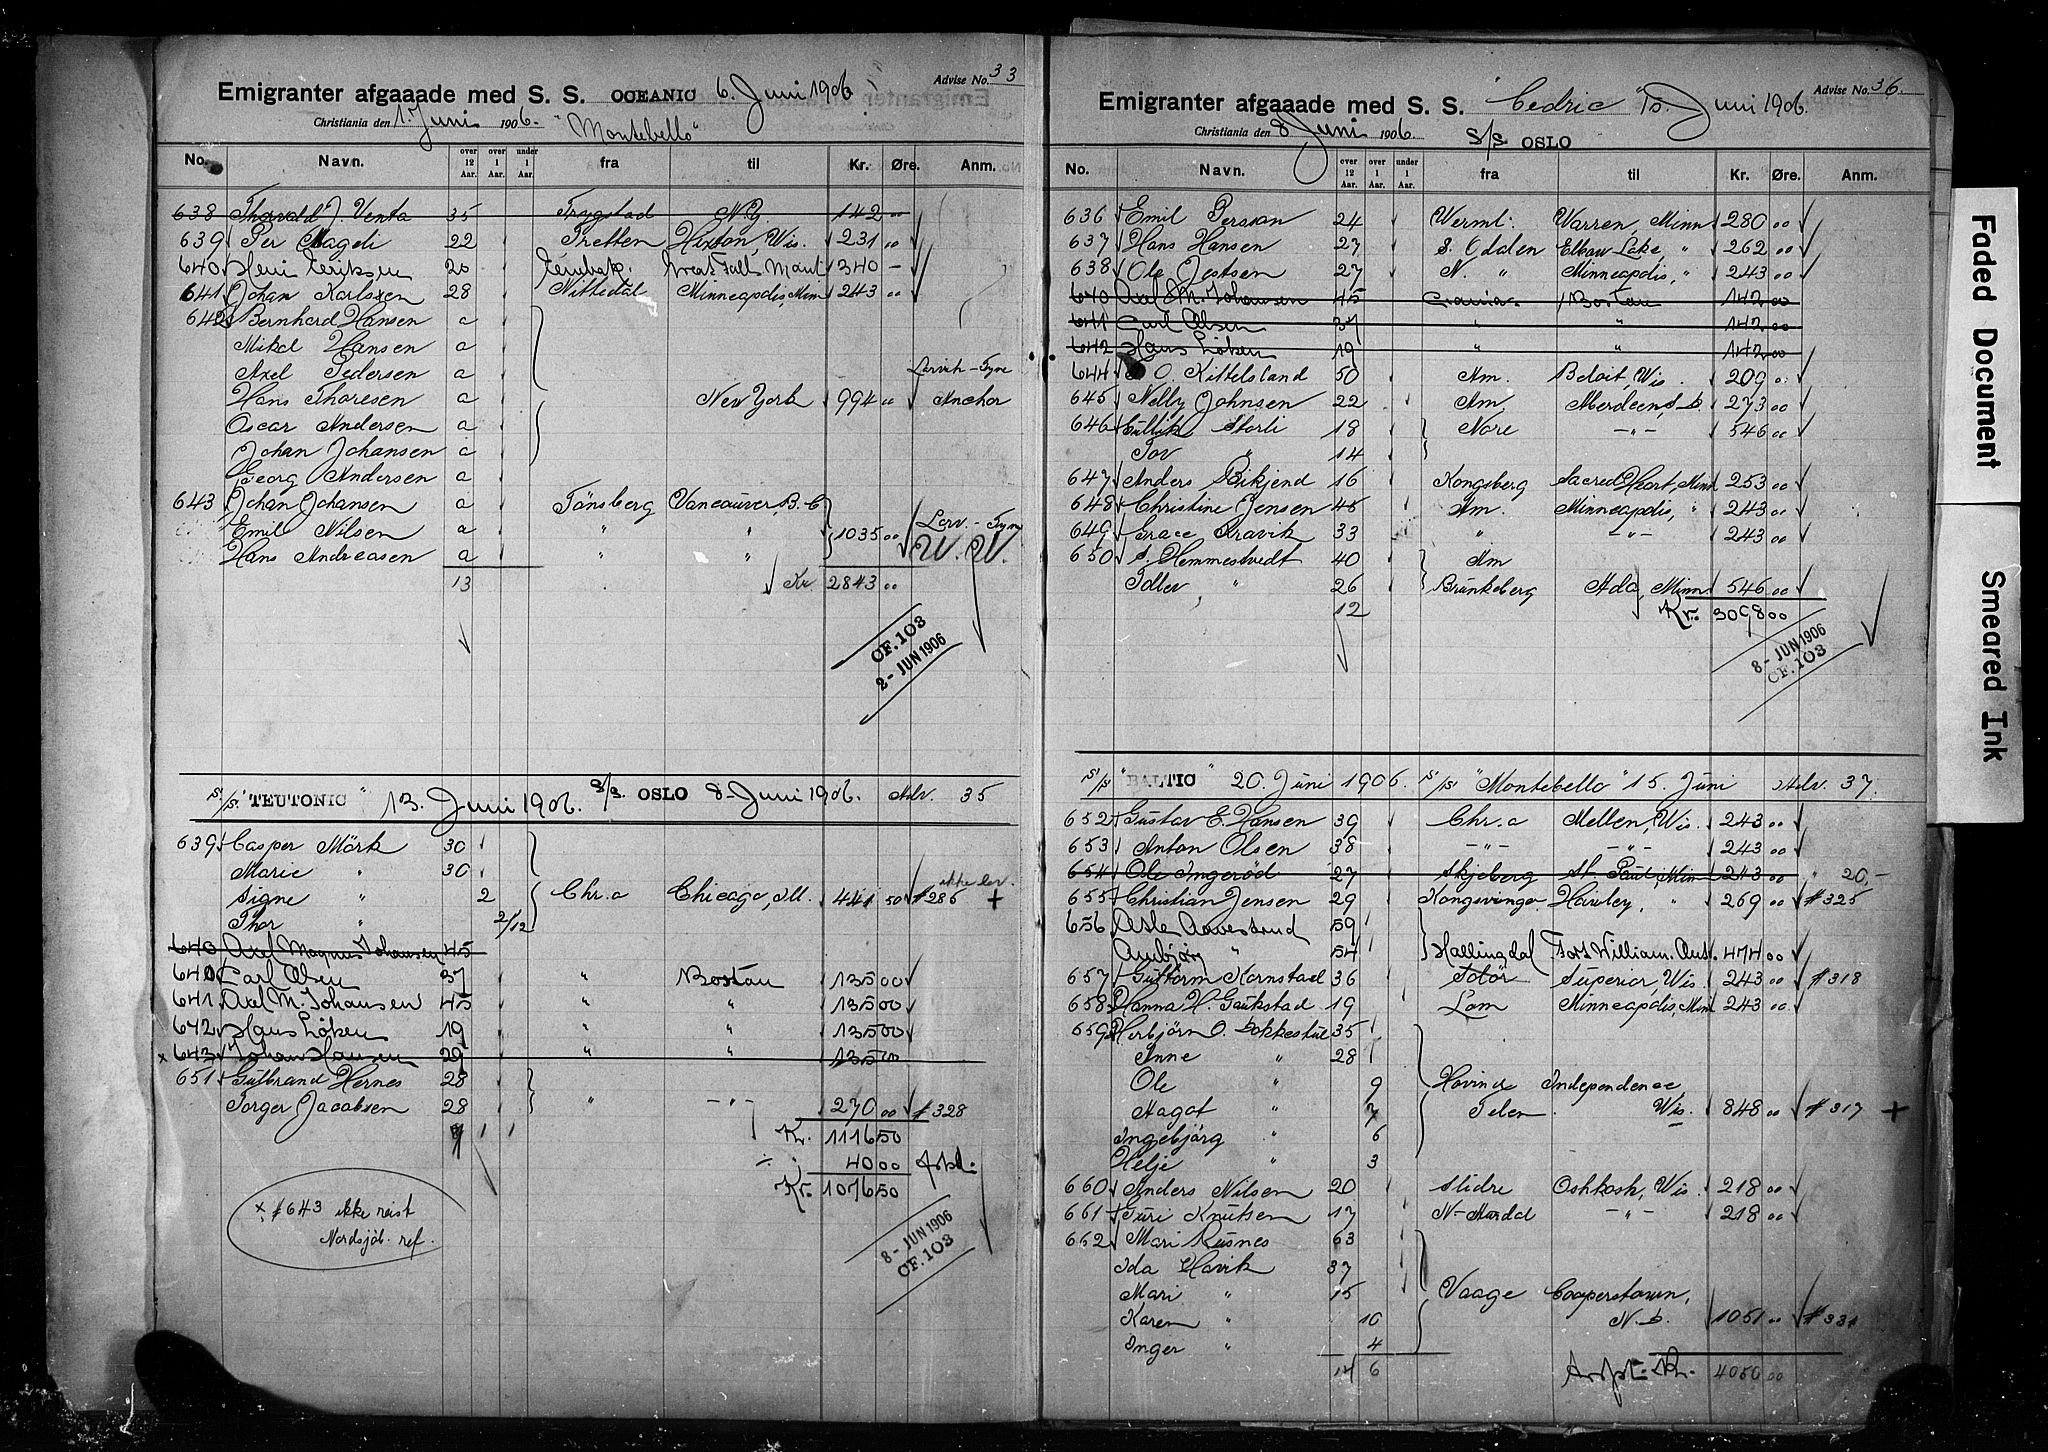 Advise No. 33
Emigranter afgaaade med S. S. OCEANIC 6. Juni 1906
Christiania den 1. Juni 1906. "Montebello"
No. Navn. over 12 Aar. over 1 Aar. under 1 Aar. fra til Kr. Øre. Anm.
638 Thorvald J. Venta 35 Trygstad N.Y. 142 00
639 Per Mageli 22 Tretten Hixton Wis. 231 00
640 Eriksen 20 Great Falls Mont 340 -
641 Johan Karlsen 28 Nittedal Minneapolis, Min 243 00
642 Bernhard Hansen a
Mikal Hansen a
Axel Pedersen a Lervik - Tyne
Hans Thoresen a New York 994 00 Anchor
Oscar Andersen a
Johan Johansen a
Georg Andersen a
643 Johan Johansen a Tönsberg Vancouver, B.C
Emil Nilsen a " " 1035 00 Lerv. - Tyne
Hans Andreasen a " " W. W.
13 Kr 2843 00
CF. 103
2 - JUN 1906
S/S "TEUTONIC" 13. Juni 1906. S/S. OSLO 8 - Juni 1906. Adv. 35
639 Casper Mörk 30
Marie " 30 ikke lev.
Signe " 2 Chr.a Chicago, Ill. 441 50 # 286 +
Thor " 2/12
640 Axel Magnus Johansen 45
640 Carl Olsen 37 " Boston 135 00
641 Axel M. Johansen 45 " " 135 00
642 Hans Löken 19 " " 135 00
x 643 Johan Hansen 29 " " 135 00
651 Gulbrand Hernes 28
Torger Jacobsen 28 " -"- 270 00 # 328
7 1 1 Kr. 1116 50
÷ 40 00
Kr. 1076 50
x # 643 ikke reist
Nordsjöb. ref.
8 - JUN 1906
CF. 103
Advise No. 36.
Emigranter afgaaade med S. S. "Cedric" 15. Juni 1906.
Christiania den 8 Juni 1906. S/S. OSLO
No. Navn. over 12 Aar. over 1 Aar. under 1 Aar. fra til Kr. Øre. Anm.
636 Emil Persson 24 Werml. Warren, Minn 280 00
637 Hans Hansen 27 S. Odalen Elbow Lake, " 262 00
638 Ole Jestsen 27 N. " Minneapolis, " 243 00
640 Axel M. Johansen 45 Boston 142 00
641 Carl Olsen 37 " " 142 00
642 Hans Löken 19 " " 142 00
644 O. Kittelsland 50 Am. Beloit, Wis. 209 00
645 Nelly Johnsen 22 Am. Aberdeen, S.D. 273 00
646 Gullik Storli 18 Nore -"- 546 00
Tov " 14
647 Anders Bikjend 16 Kongsberg Sacred Heart, Minn 253 00
648 Christine Jensen 45 Am. Minneapolis, " 243 00
649 Grace Kravik 33 " -"- 243 00
650 S. Hemmestvedt 40 Am
Tallev " 26 Brunkeberg Ada, Minn 546 00
12 Kr. 3098 00
8 - JUN 1906
CF. 103
S/S "BALTIC" 20. Juni 1906. S/S "Montebello" 15. Juni Adv. 37.
652 Gustav E. Hansen 39 Chr.a Mellen, Wis. 243 00
653 Anton Olsen 38 -"- -"- 243 00
654 Ole Ingeröd 27 Skjeberg St. Paul, Min 243 00 " 20.-
655 Christian Jensen 29 Kongsvinger Hawley, " 269 00 # 325
656 Asle Aavestrud 59
" 54 Hallingdal Fort William. Ont. 474 00
657 Guttorm Kornstad 36 Toten Superior, Wis. 243 00 # 318
658 Hanna H. Gaukstad 19 Lom Minneapolis, Min 243 00
659 Herbjörn O. Dokkestul 35
Anne " 28
Ole " 9 Hovin i Independence
Aagot " 7 Telem. Wis. 848 00 # 317 +
Ingebjörg " 6
Helje " 3
660 Anders Nilsen 20 Slidre Oshkosh, Wis. 218 00
661 Guri Knutsen 17 N-Aurdal -"- 218 00
662 Mari Rusnes 63
Ida Havik 37
Mari " 15 Vaage Cooperstown,
Karen " 10 N.D. 1051 00 # 331
Inger " 4
14 6 Kr. 4050 00
Faded Document
Smeared Ink